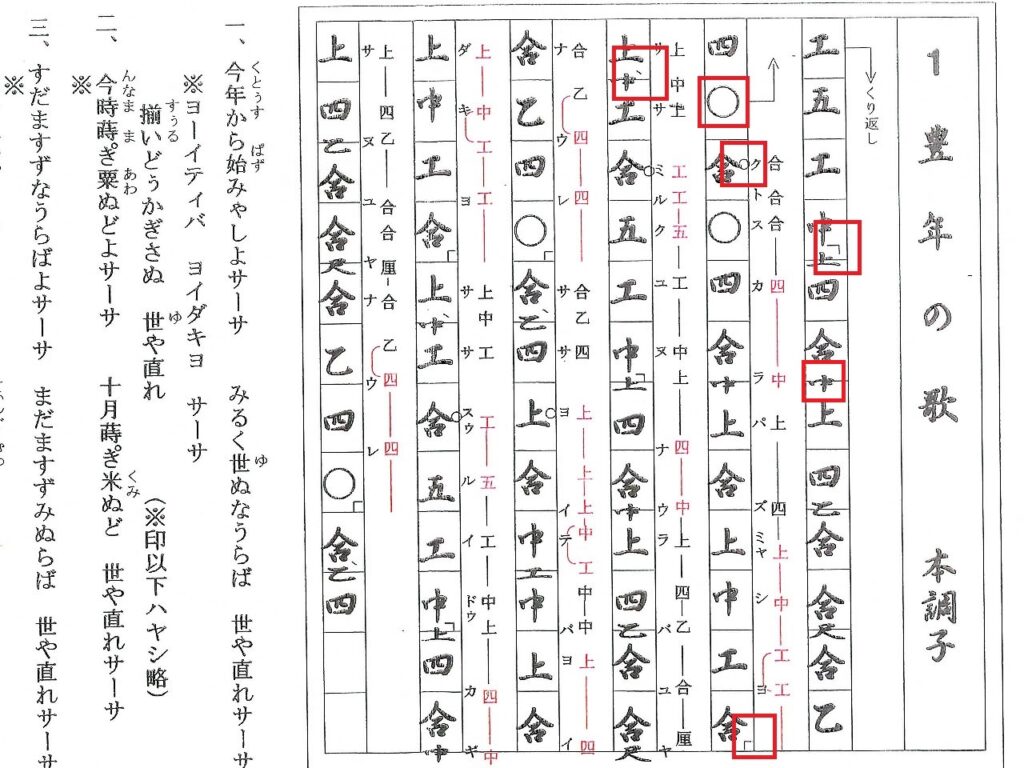 1 豊年の歌　本調子
くり返し
工五工中上四合中上四乙合合尺合乙
合合合四中上四上中工工
クトスカラパズミャシヨ
四○合○四合中上合上中工合
上中上工工五工中上四中上四乙合厘
ササミルクユヌナウラバユヤ
上中工合五工中上四合中上四乙合合尺
合乙四四合乙四上上上中工中中上四
ナウレササヨイテパヨイ
合乙四○合乙四上合中工中上合
上中工工上中工工五工中上四中
ダキヨササスゥルイドゥカギ
上中工合上中工合五工中上四合中
上四乙合合厘合乙四四
サヌユヤナウレ
上四乙合合尺合乙四○合乙四
くとぅす　ぱず　ゆ
一、今年から始みゃしよサーサ　みるく世ぬなうらば　世や直れサーサ
※ヨーイティバ　ヨイダキヨ　サーサ
すぅる　ゆ
揃いどぅかぎさぬ　世や直れ　（※印以下ハヤシ略）
んなま　ま　あわ　くみ
二、今時蒔ぎ粟ぬどよサーサ　十月蒔ぎ米ぬど　世や直れサーサ
※
三、すだますずなうらばよサーサ　まだますずみぬらば　世や直れサーサ
※